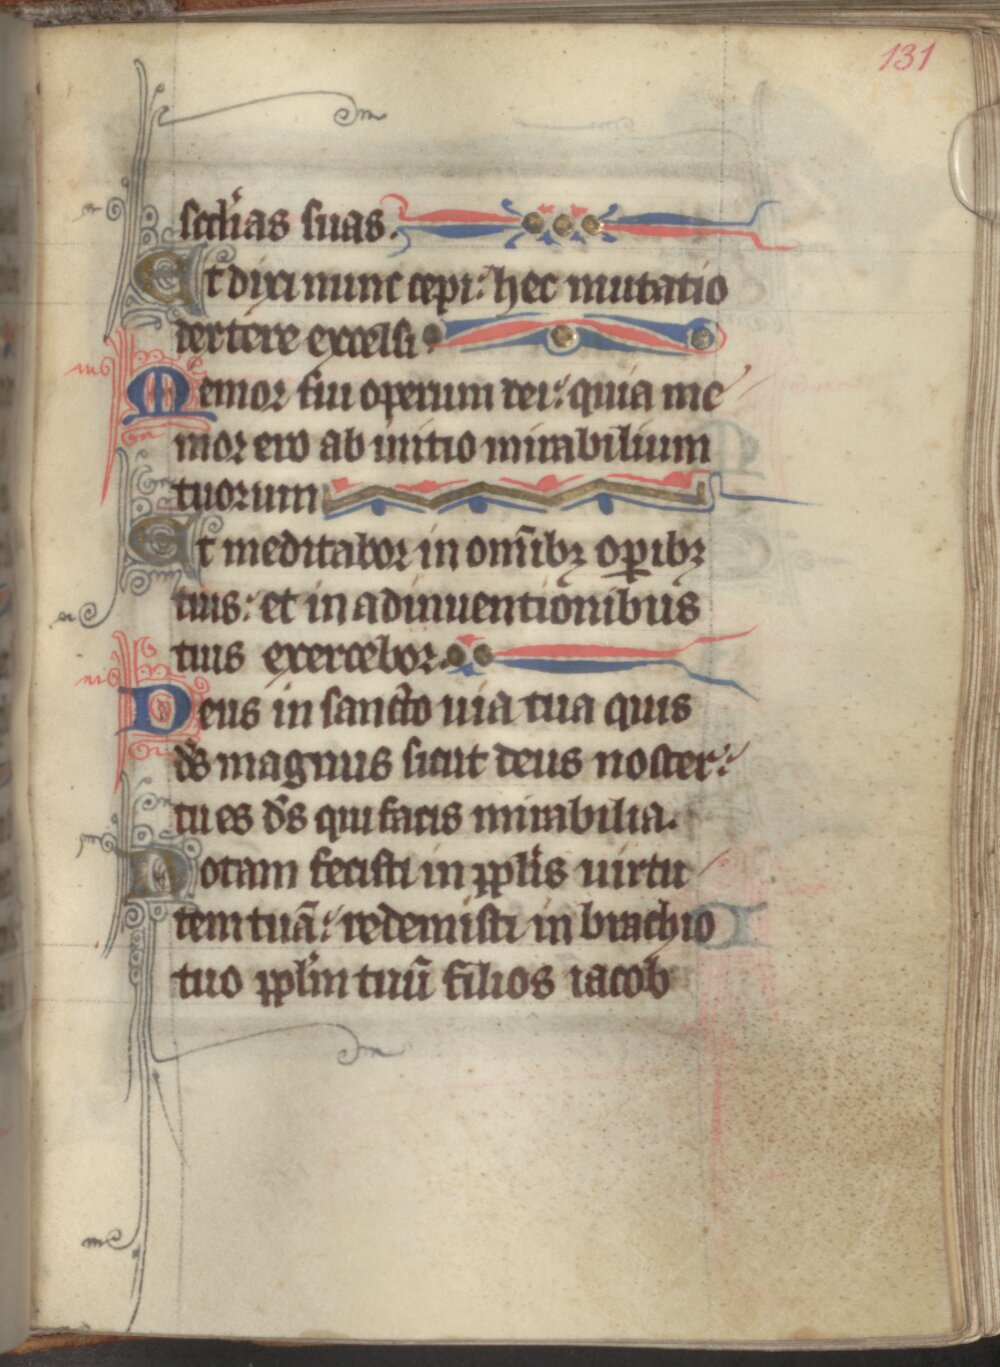 131
scd'ias suas.
Et dixi nunc cepi: hec mutatio
dextere excelsi
Memor fui operum dei: quia me
mor ero ab initio mirabilium
tuorum
Et meditabor in om̄ibꝫ oꝑibꝫ
tuis: et in adinuentionibus
tuis exercebor.
Deus in sancto uia tua quis
ds̄ magnus sicut deus noster:
tu es ds̄ qui facis mirabilia.
Notam fecisti in ppl'is uirtu
tem tuā: redemisti in brachio
tuo ppl'm tuū filios iacob